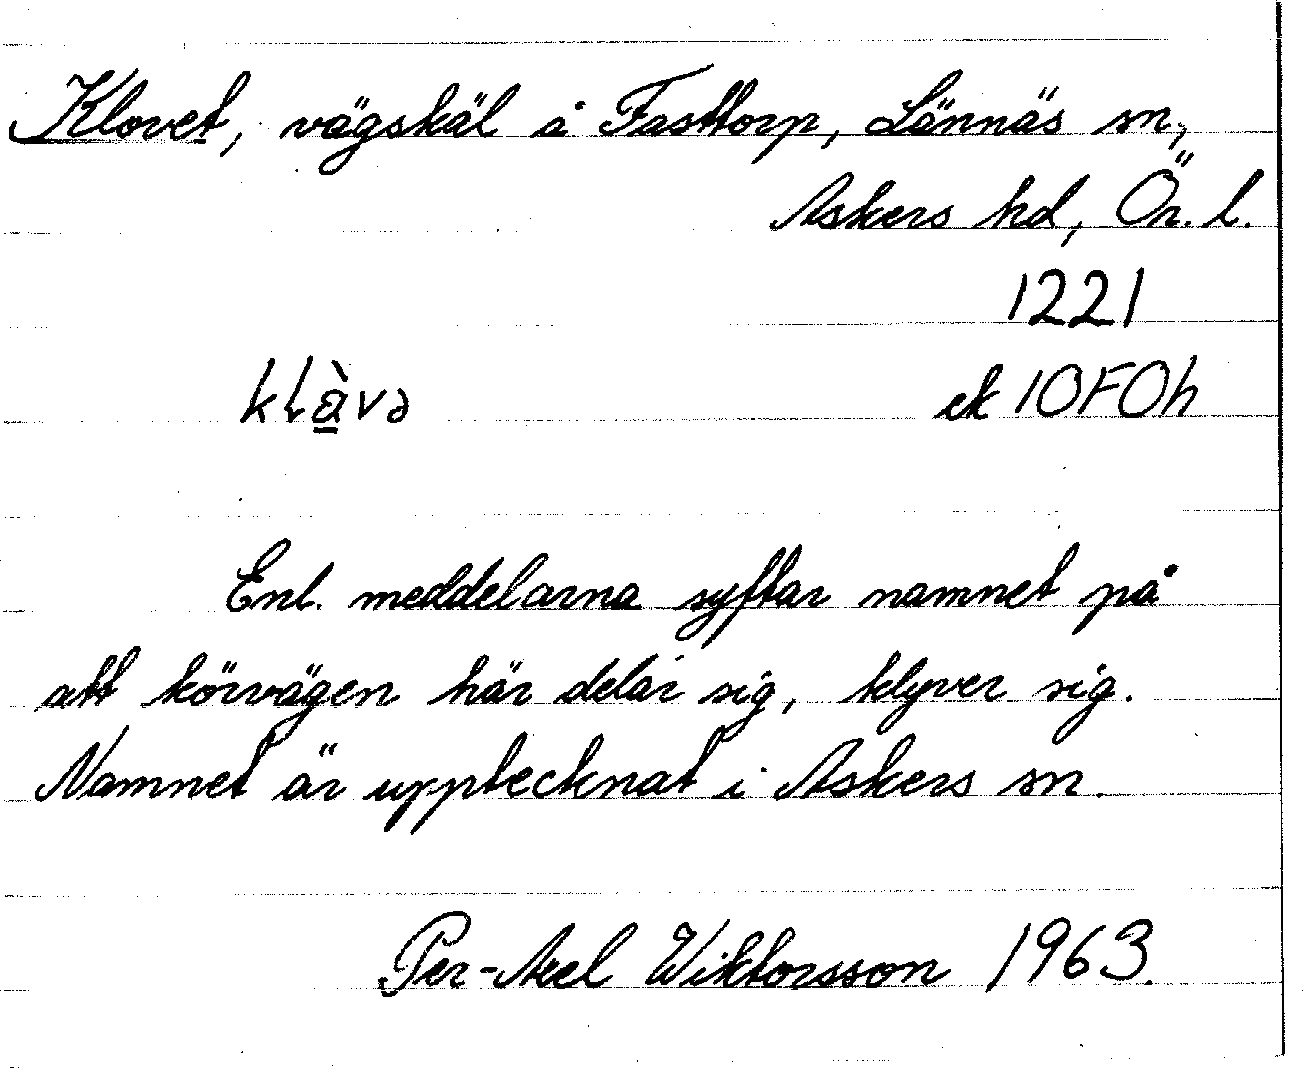 Klovet, vägskäl å Fasttorp, Lännäs sn,
Askers hd, Ör. l.
1221
klàvə
ek 10F0h
Enl. meddelarna syftar namnet på
att körvägen här delar sig, klyver sig.
Namnet är upptecknat i Askers sn.
Per-Axel Wiktorsson 1963.